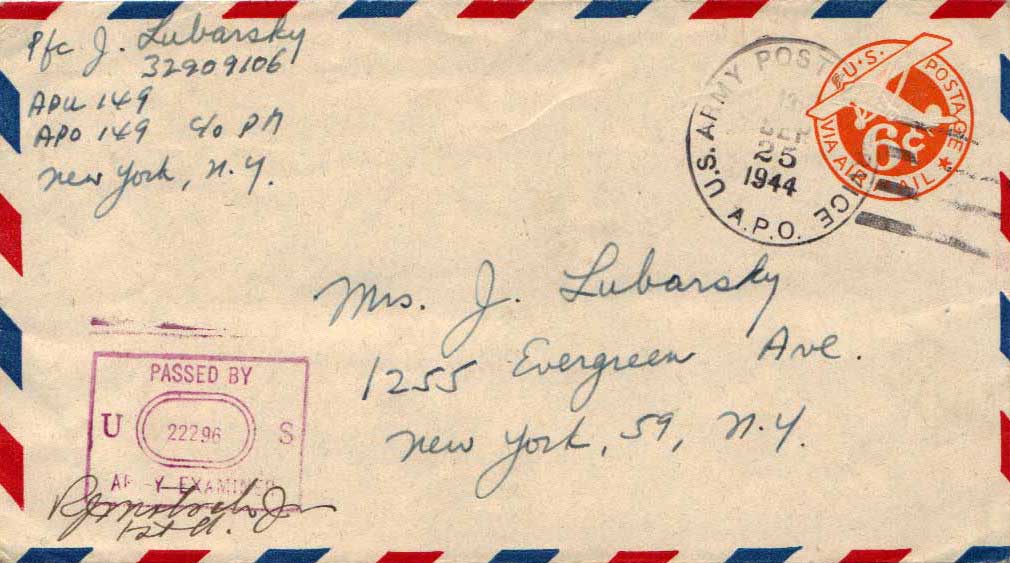 Pfc J. Lubarsky
32909106
APU 149
APO 149 c/o PM
New York, N.Y.
U.S. ARMY POSTAL
SEP
25
1944
A.P.O.
U.S. POSTAGE
6¢
VIA AIR MAIL
Mrs. J. Lubarsky
1255 Evergreen Ave.
New York, 59, N.Y.
PASSED BY
U 22296 S
ARMY EXAMINER
1st Lt.